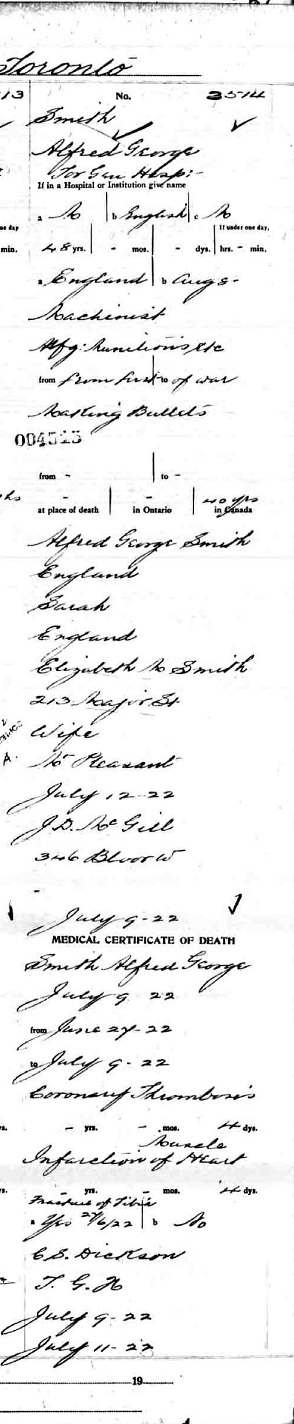 Toronto
13 No. 3514
Smith
Alfred George
Tor Gen Hosp:-
If in a Hospital or Institution give name
a M b English c M
one day If under one day,
min. 48 yrs. - mos. - dys. hrs. - min.
a England b Aug 8-
Machinist
Mfg: Munitions, etc
from From first to of war
Making Bullets
004515
from - to -
- - 40 yrs
at place of death in Ontario in Canada
Alfred George Smith
England
Sarah
England
Elizabeth M Smith
213 Major St
Wife
A. Mt Pleasant
July 12-22
J.D. McGill
346 Bloor W
-
July 9-22
MEDICAL CERTIFICATE OF DEATH
Smith Alfred George
July 9 22
from June 27-22
to July 9-22
Coronary Thrombosis
rs. - yrs. - mos. 4 dys.
Muscle
Infarction of Heart
rs. - yrs. - mos. 4 dys.
Fracture of Tibia
a Yes 27/6/22 b No
C.S. Dickson
T. G. H
July 9-22
July 11-22
19